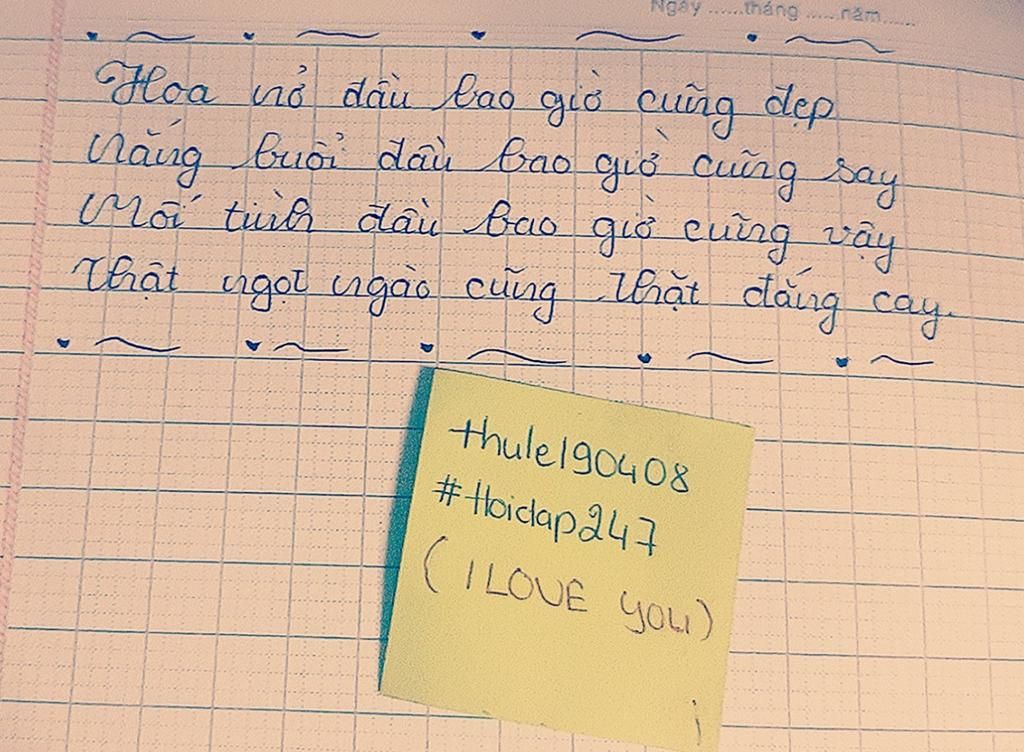 Ngày ......tháng ......năm......
Hoa nở đầu bao giờ cũng đẹp
Nắng buổi đầu bao giờ cũng say
Mối tình đầu bao giờ cũng vậy
Thật ngọt ngào cũng thật đắng cay.
thule190408
#Hoidap247
(I LOVE YOU)